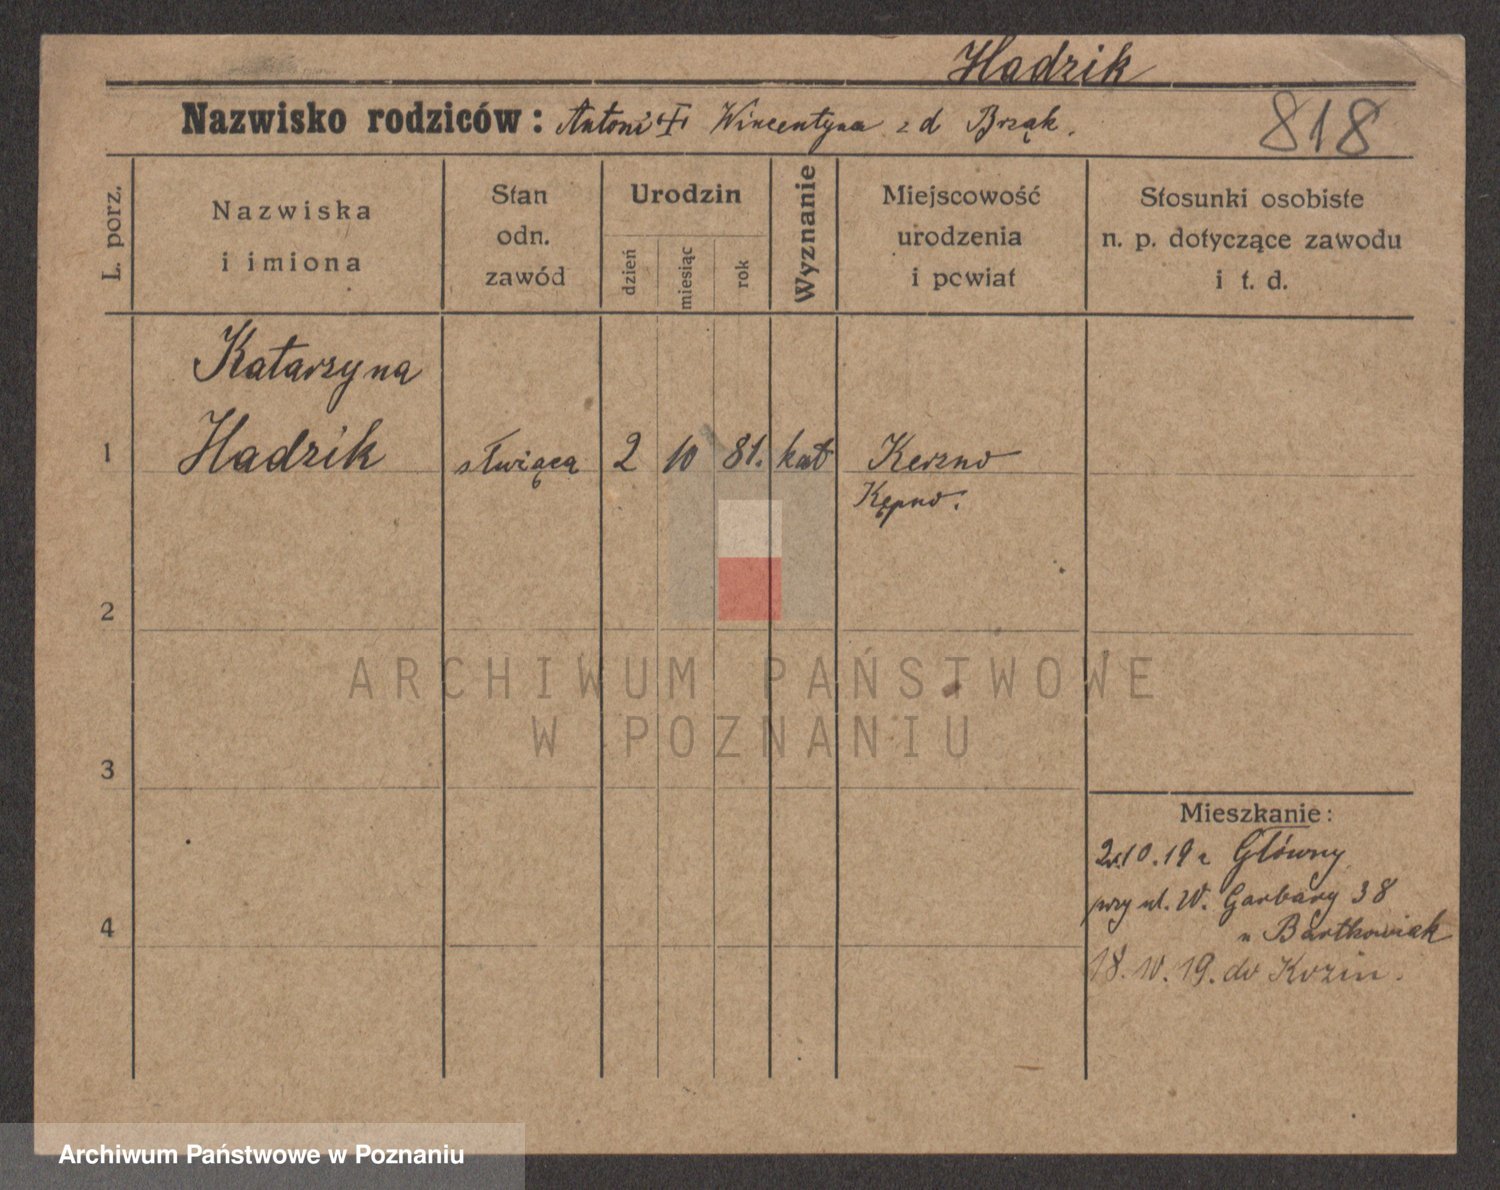 Hadzik
Nazwisko rodziców: Antoni Wincentyna z d Brząk.
818
L. porz.
Nazwiska
i imiona
Stan
odn.
zawód
Urodzin
dzień
miesiąc
rok
Wyznanie
Miejscowość
urodzenia
i powiat
Stosunki osobiste
n. p. dotyczące zawodu
i t. d.
Katarzyna
1 Hadzik służąca 2 10 81. kat Kerzno
Kępno.
2
ARCHIWUM PAŃSTWOWE
W POZNANIU
3
Mieszkanie:
10.19 z Główny
przy ul. W. Garbary 38
u Bartkowiak
4
18. 10. 19. do
Archiwum Państwowe w Poznaniu